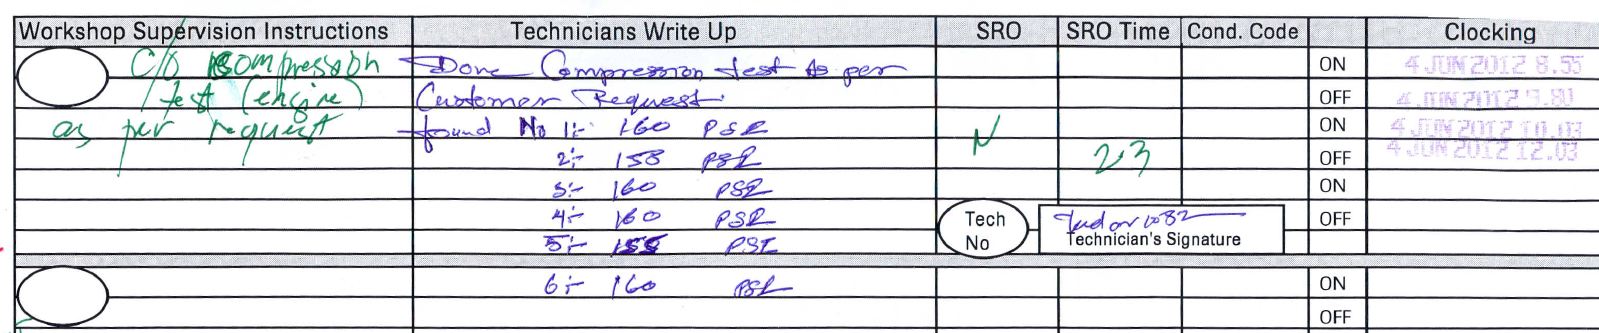 Workshop Supervision Instructions Technicians Write Up SRO SRO Time Cond. Code Clocking
C/o compression Done Compression test As per ON 4 JUN 2012 8.55
test (engine) Customer Request. OFF 4 JUN 2012
as per request found No 1:- 160 PSI N ON 4 JUN 2012 10.03
2:- 158 PSI 2.3 OFF 4 JUN 2012 12.03
3:- 160 PSI ON
4:- 160 PSI Tech No OFF
5:- 155 PSI Technician's Signature
6:- 160 PSI ON
OFF